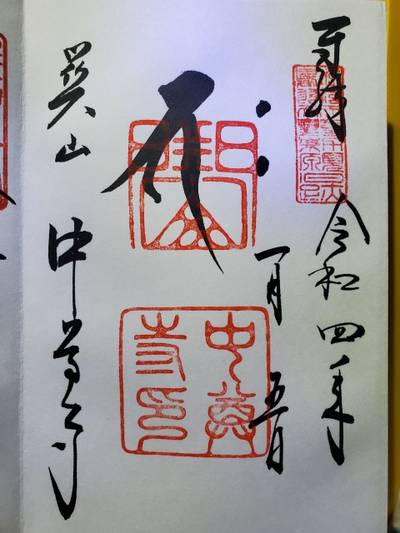 奉拝
令和四年
一月五日
関山
中尊寺
中尊寺印